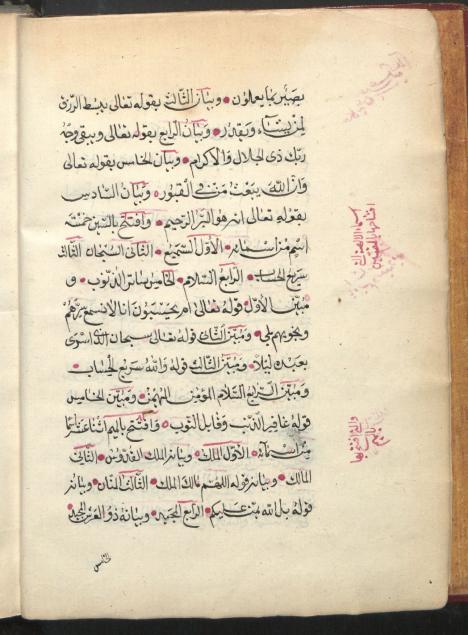 بصير بما يعملون وبيان الثالث بقوله تعالى يبسط الرزق
لمن يشاء ويقدر وبيان الرابع بقوله تعالى ويبقى وجه
ربك ذى الجلال والاكرام وبيان الخامس بقوله تعالى
وان الله يبعث من فى القبور وبيان السادس
بقوله تعالى انه هو البر الرحيم وافتتح بالسين خمسة
اسم من اسمائه الأول السميع الثانى السبحان الثالث
سريع الحساب الرابع السلام الخامس ساتر الذنوب و
مبين الأول قوله تعالى ام يحسبون انا لا نسمع سرهم
ونجويهم بلى ومبين الثانى قوله تعالى سبحان الذى اسرى
بعبده ليلا ومبين الثالث قوله والله سريع الحساب
ومبين الرابع السلام المؤمن المهيمن ومبين الخامس
قوله غافر الذنب وقابل التوب وافتتح بالميم اثنا عشر اسما
من اسمائه الأول الملك وبيانه الملك القدوس الثانى
المالك وبيانه قوله اللهم مالك الملك الثالث المنان وبيانه
قوله بل الله يمن عليكم الرابع المجيد وبيانه ذو العرش المجيد
الخامس